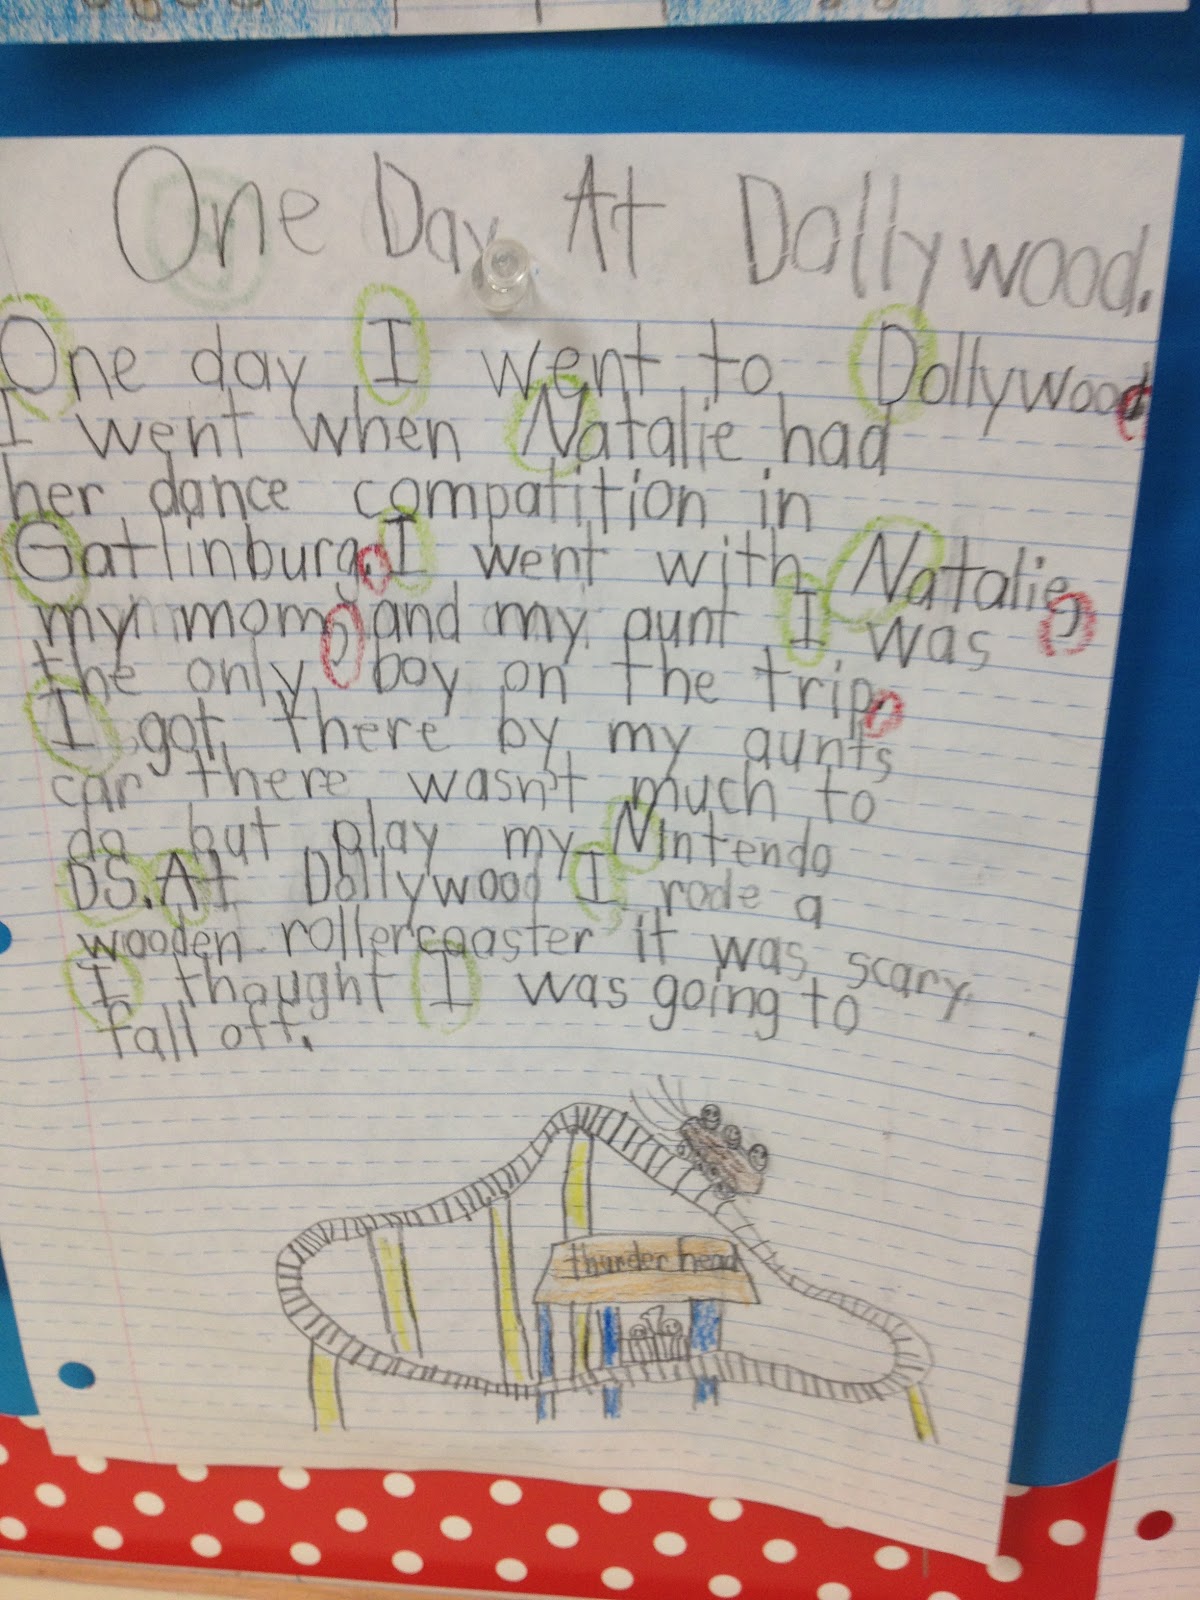 One Day At Dollywood.
One day I went to Dollywood.
I went when Natalie had
her dance compatition in
Gatlinburg. I went with Natalie,
my mom, and my aunt I was
the only boy on the trip.
I got there by my aunts
car there wasn't much to
do but play my Nintendo
DS. At Dollywood I rode a
wooden rollercoaster it was scary.
I thought I was going to
fall off.
thunder head